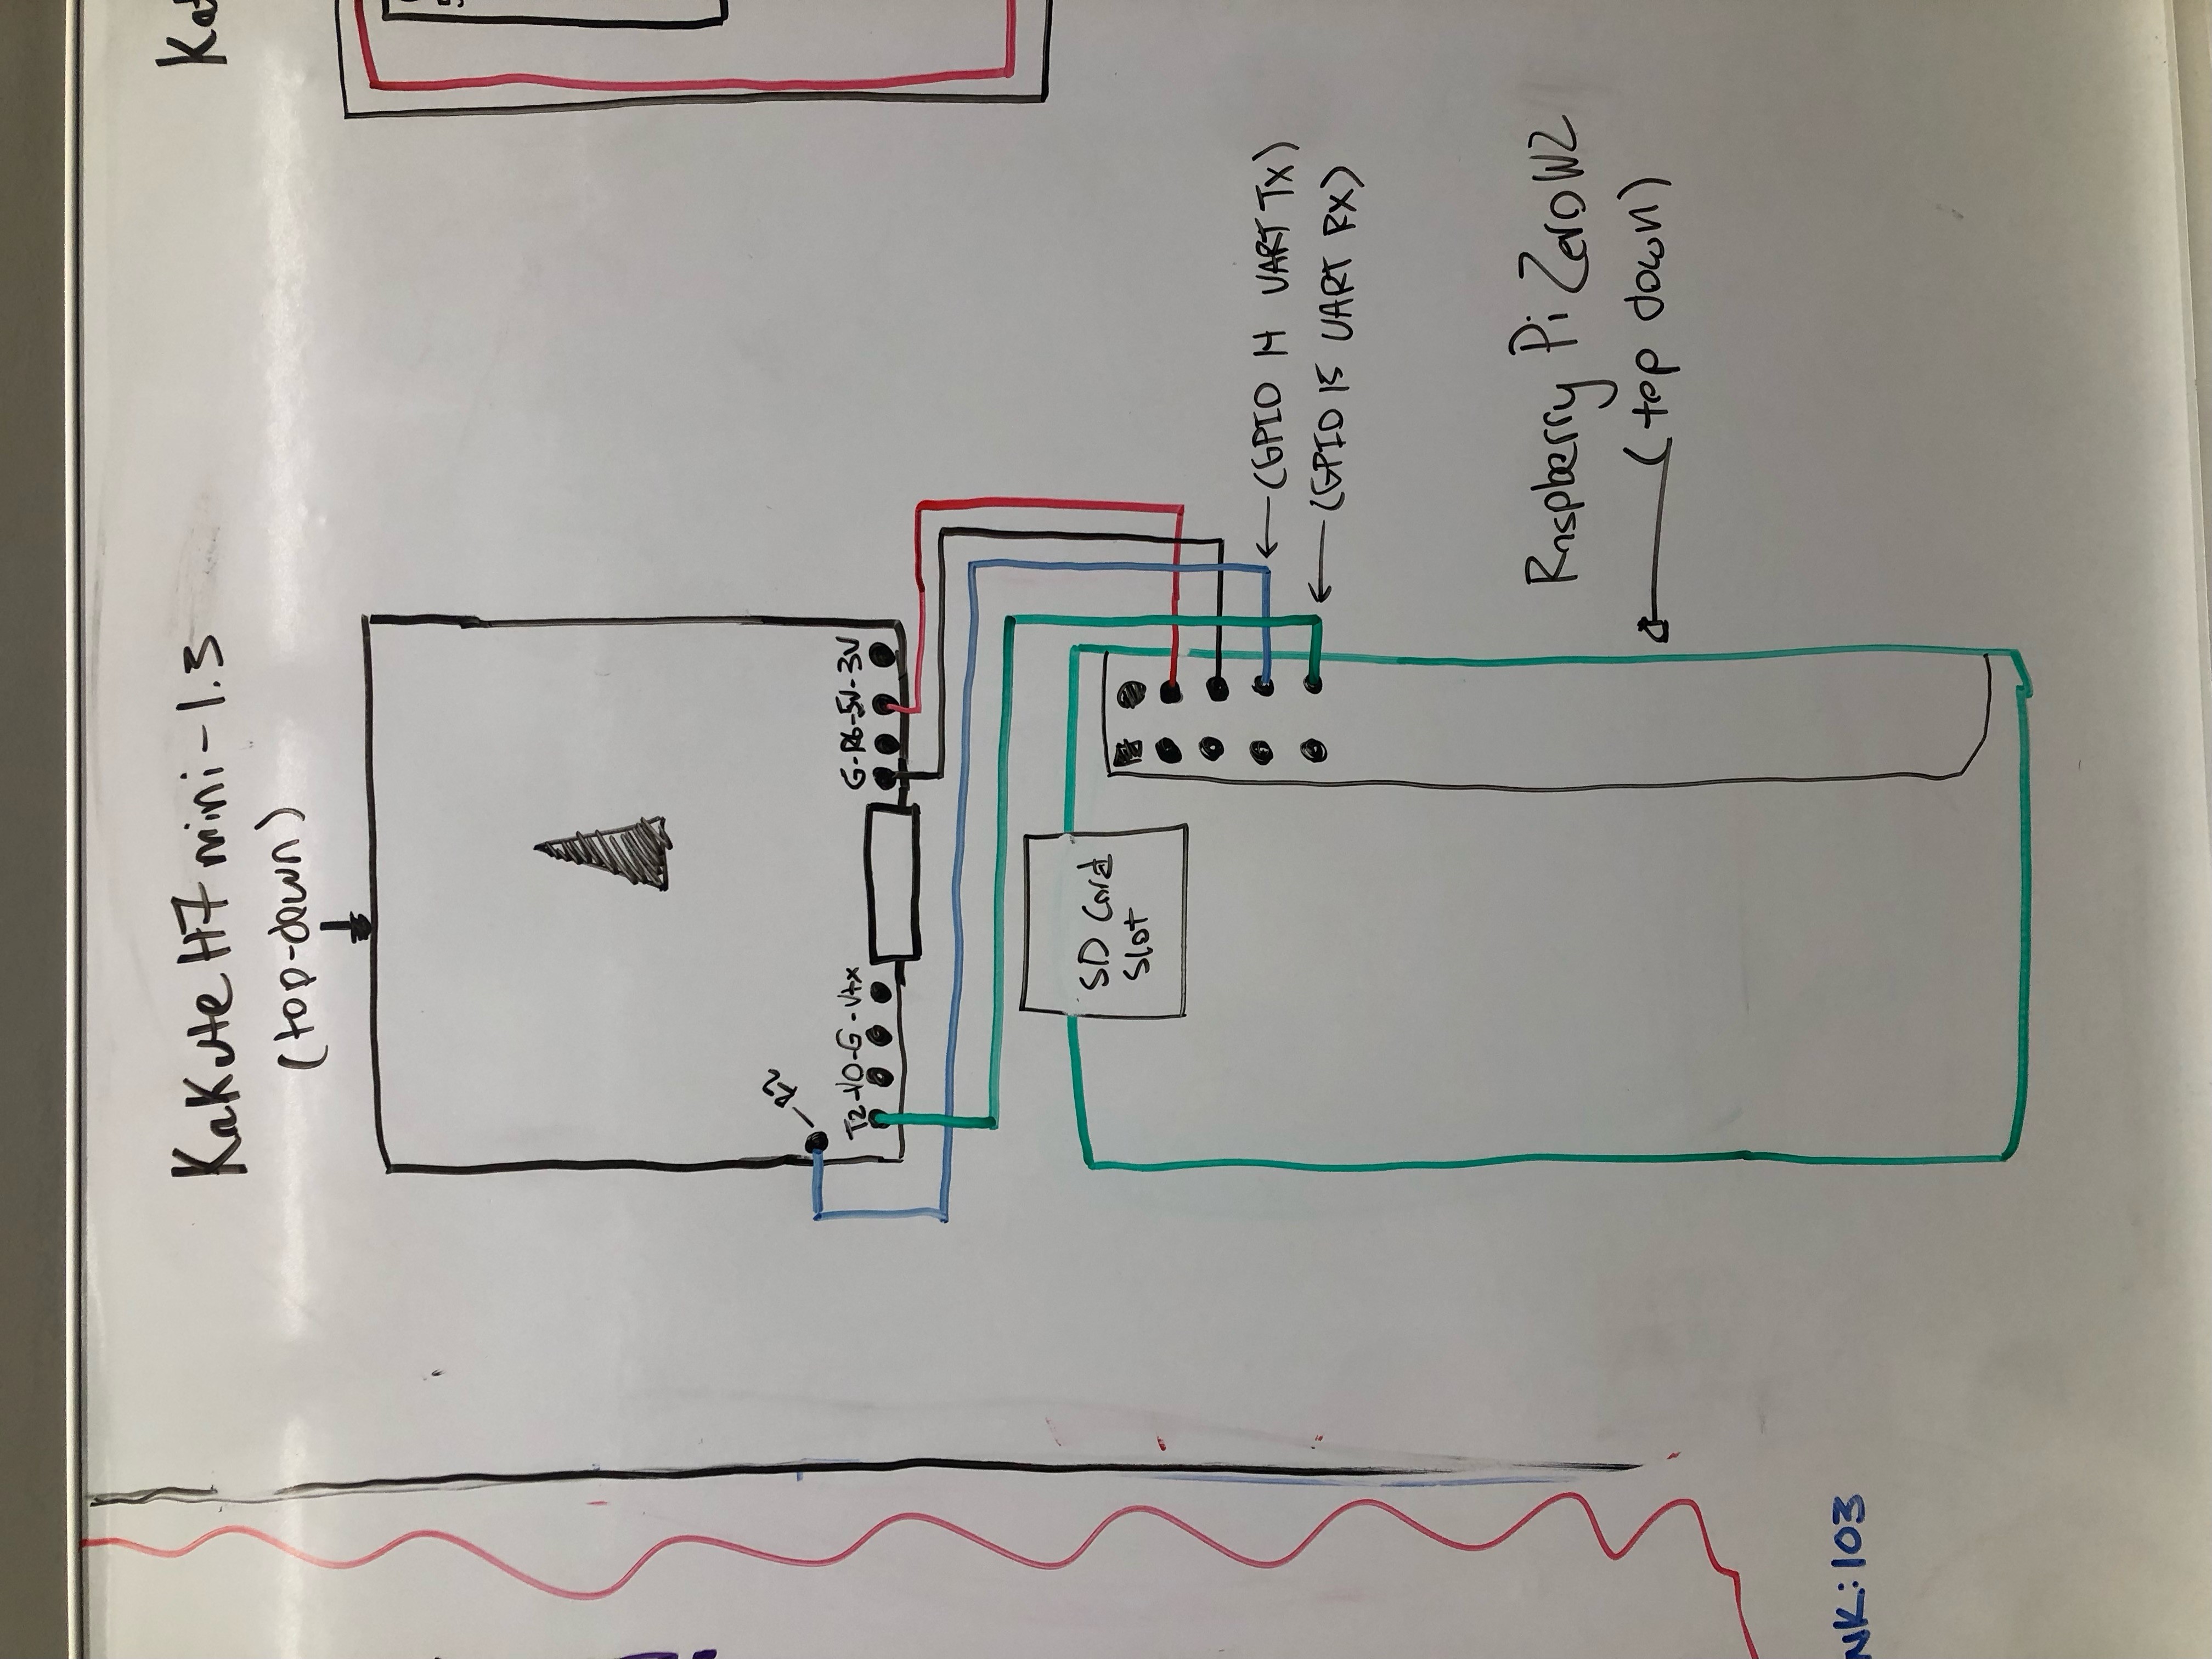 KaKute H7 mini-1.3
(top-down)
R2
T2-VO-G-Vtx
G-R6-5V-3V
SD Card
Slot
(GPIO 14 UART TX)
(GPIO 15 UART RX)
Raspberry Pi Zero W2
(top down)
NK:103